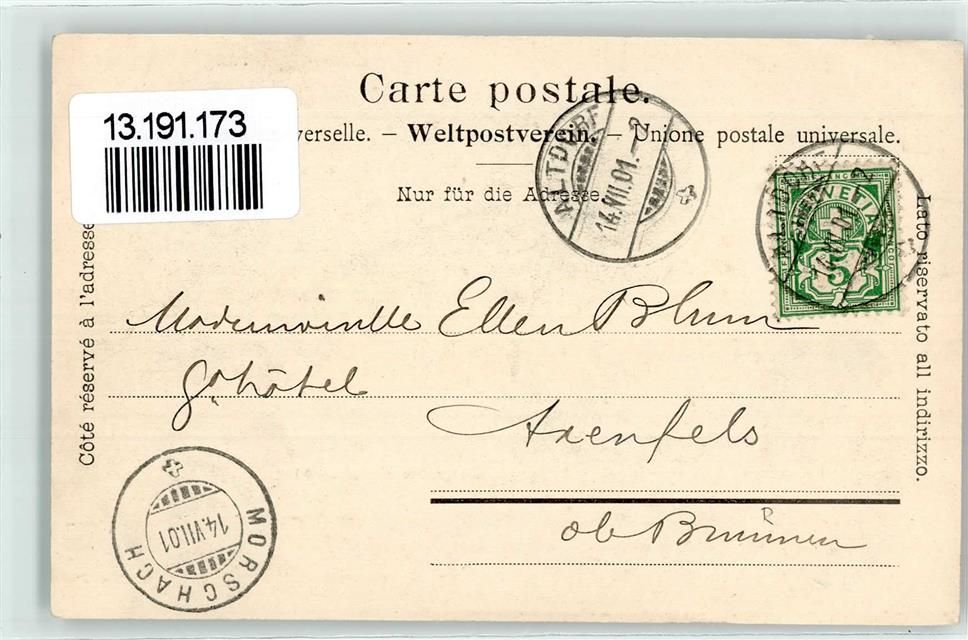 Carte postale.
13.191.173
verselle. – Weltpostverein. – Unione postale universale.
Nur für die Adresse.
ALTDORF
14.VII.01.–
HELVETIA
5
14.VII.01
Côté réservé à l'adresse
Lato riservato all indirizzo.
Mademoiselle Ellen Blum
Axenfels
ob Brunnen
MORSCHACH
14.VII.01